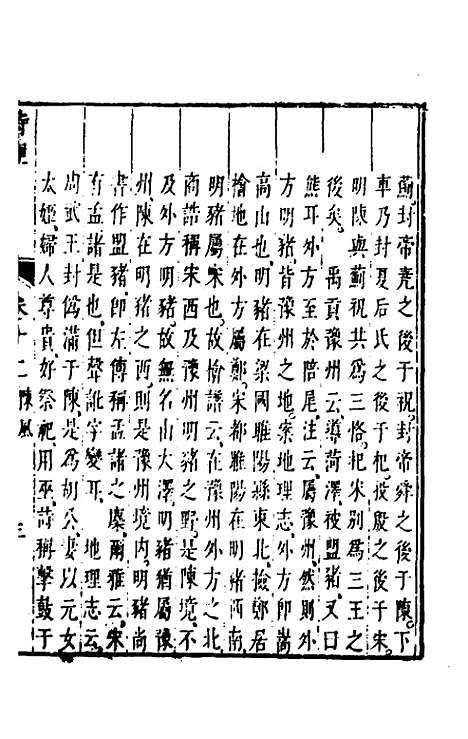 薊封帝堯之後于祝封帝舜之後于陳下
車乃封夏后氏之後于杞投殷之後于宋
明陳與薊祝共爲三恪杞宋別爲三王之
後矣。 禹貢豫州云導菏澤被盟豬又曰
熊耳外方至於陪尾注云屬豫州然則外
方明豬皆豫州之地案地理志外方卽嵩
高山也明豬在梁國睢陽縣東北檢鄭居
檜地在外方屬鄭宋都睢陽在明豬西南
明豬屬宋也故檜譜云在豫州外方之北
商譜稱宋西及豫州明豬之野是陳境不
及外方明豬故無名山大澤明豬猶屬豫
州陳在明豬之西則是豫州境内明豬尚
書作盟豬卽左傳稱孟諸之麋爾雅云宋
有孟諸是也但聲訛字變耳 地理志云
周武王封嬀滿于陳是爲胡公妻以元女
太姬婦人尊貴好祭祀用巫詩稱擊鼓于
卷十二 陳風 三